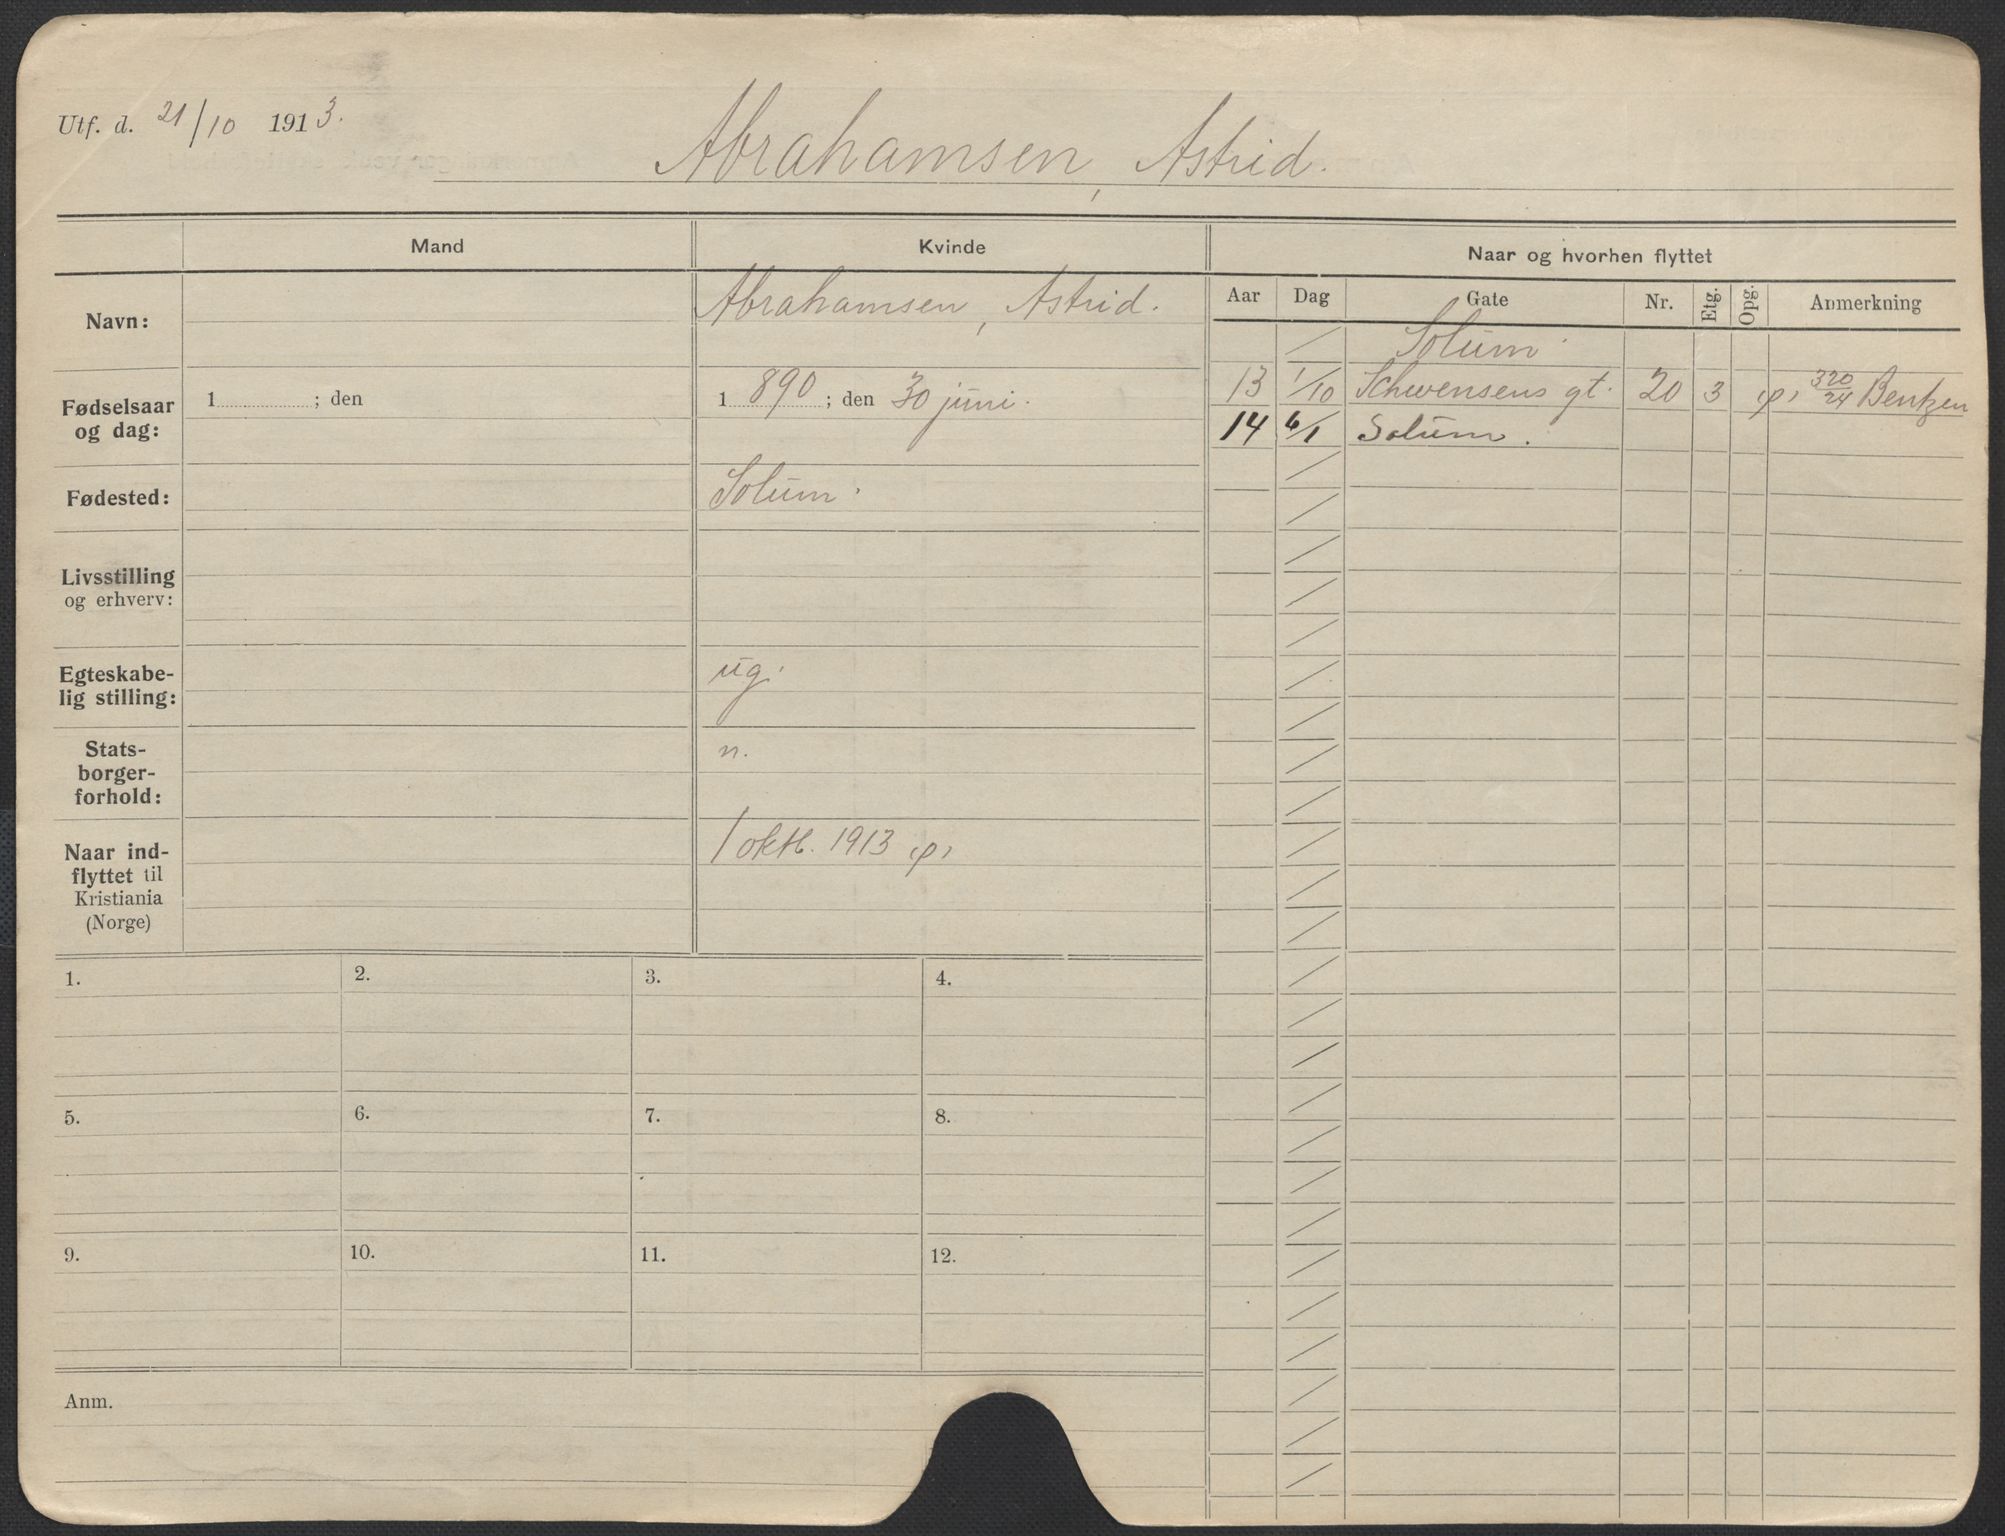 Utf. d. 21/10 1913.
Abrahamsen, Astrid.
Mand
Kvinde
Naar og hvorhen flyttet
Navn:
Abrahamsen, Astrid.
Fødselsaar og dag:
1 ; den
1 890 ; den 30 juni.
Fødested:
Solum.
Livsstilling
og erhverv:
Egteskabe-
lig stilling:
ug.
Stats-
borger-
forhold:
n.
Naar ind-
flyttet til
Kristiania
(Norge)
1 oktb. 1913
Aar Dag Gate Nr. Etg. Opg. Anmerkning
Solum
13 1/10 Schwensens gt. 20 3 320/24 Bentzen
14 6/1 Solum.
1. 2. 3. 4.
5. 6. 7. 8.
9. 10. 11. 12.
Anm.